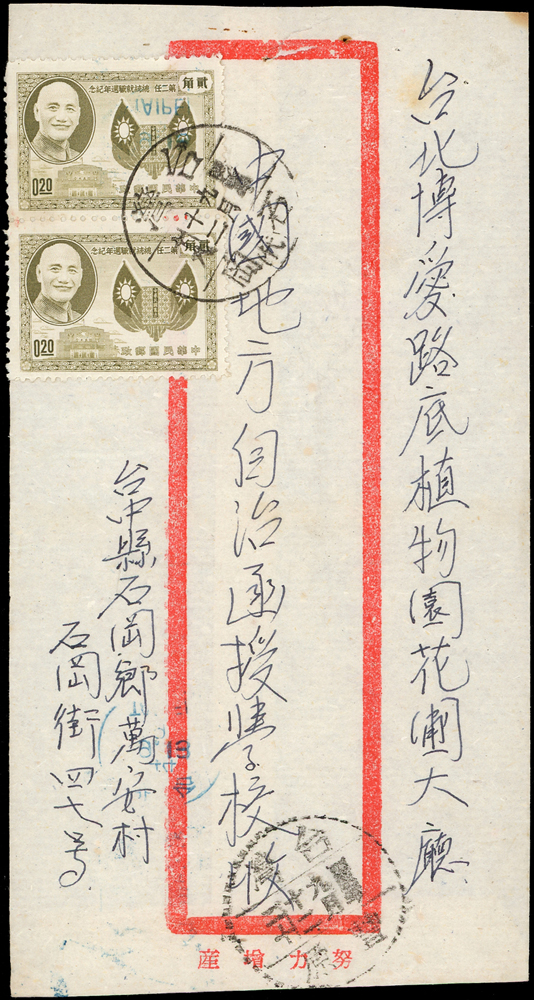 台北博愛路底植物園花圃大廳
中國地方自治函授學校收
台中縣石岡鄉萬安村
石岡街四七号
念紀年週職就統總任二第
貳角
0.20
TAIPEI
政郵國民華中
念紀年週職就統總任二第
貳角
0.20
政郵國民華中
台灣
石岡
台灣
豐原
產增力努